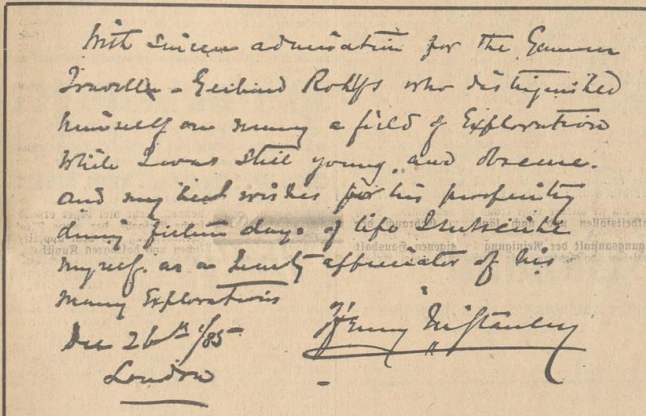 With sincere admiration for the German
Traveller - Gerhard Rohlfs who distinguished
himself on many a field of Exploration
while I was still young, and obscure.
and my best wishes for his prosperity
during future days of life I subscribe
myself, as a appreciator of his
many Explorations
Henry M Stanley
Dec 26th /85
London